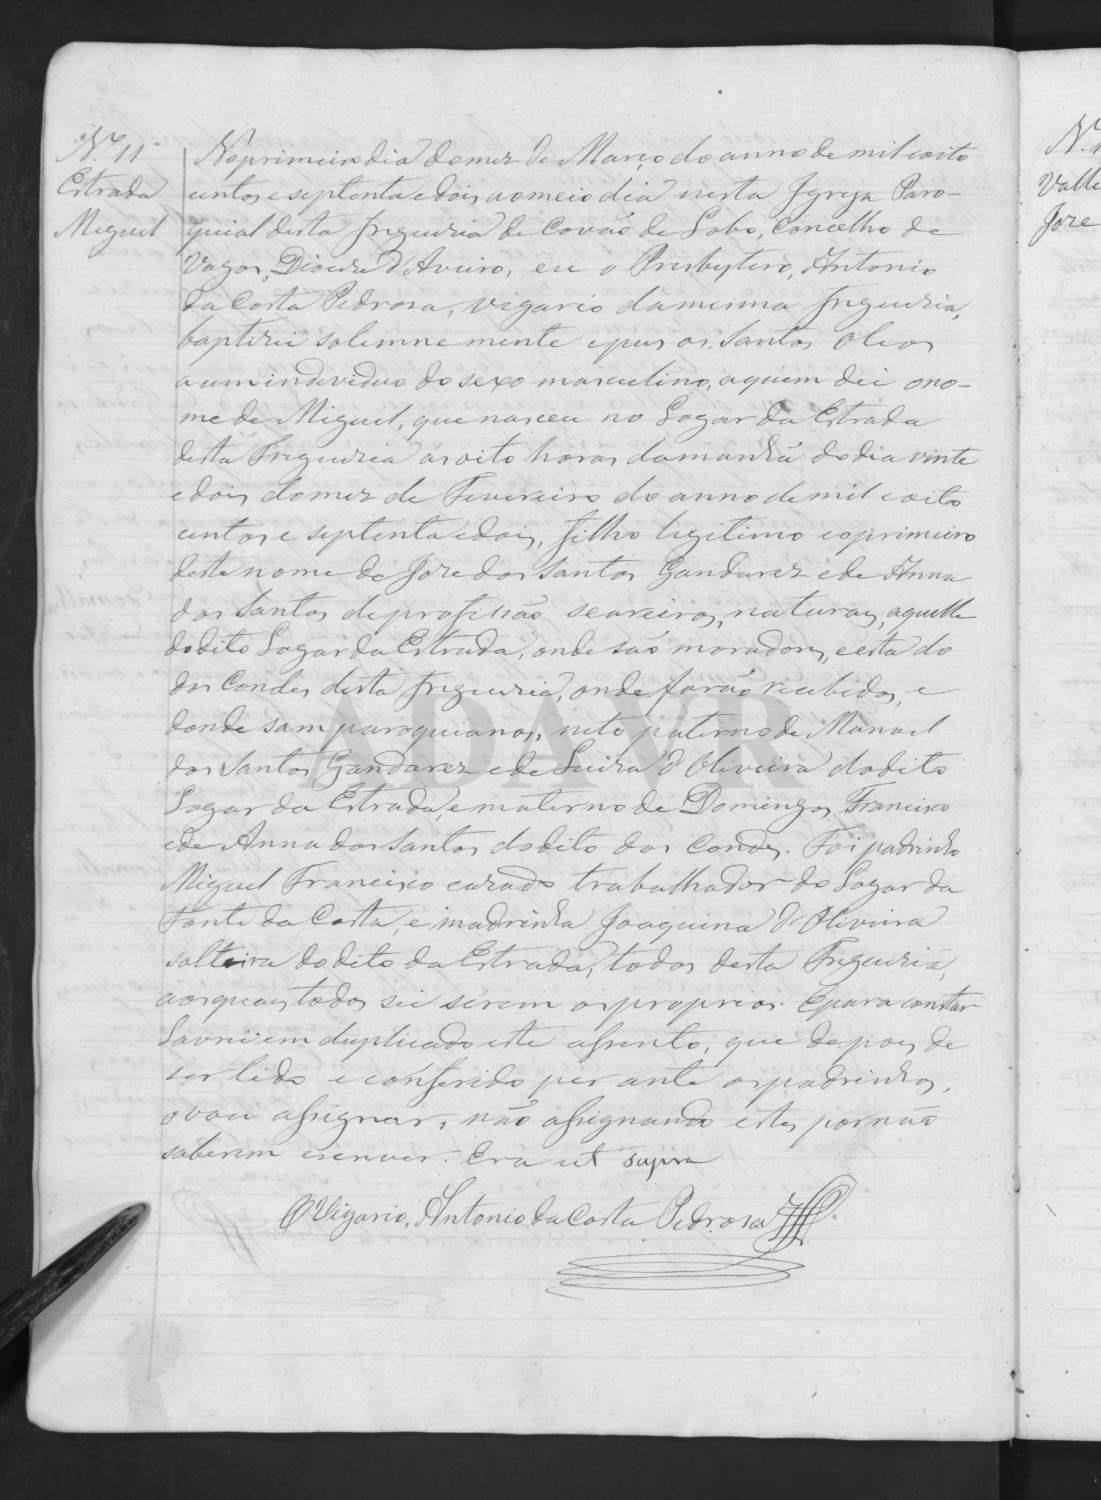 N.º 11
Estrada
Miguel
No primeiro dia do mez de Março do anno de mil e oito
centos e septenta e dois ao meio dia nesta Igreja Paro-
quial desta freguezia de Covão do Lobo, Concelho de
Vagos, Diocese d'Aveiro, eu o Presbytero, Antonio
da Costa Pedrosa, vigario da mesma freguezia,
baptizei solemne mente e pus os Santos Oleos
a um individuo do sexo masculino, a quem dei o no-
me de Miguel, que nasceu no Logar da Estrada
desta Freguezia ás oito horas da manhã do dia vinte
e dois do mez de Fevereiro do anno de mil e oito
centos e septenta e dois, filho legitimo e o primeiro
deste nome de Joze dos Santos Gandarez e de Anna
dos Santos de profissão seareiros, naturaes, aquelle
do dito Logar da Estrada, onde são moradores, e esta do
dos Condes desta freguezia, onde forão recebidos, e
donde sam paroquianos, neto paterno de Manoel
dos Santos Gandarez e de Luiza d'Oliveira do dito
Logar da Estrada, e materno de Domingos Francisco
e de Anna dos Santos do dito dos Condes. Foi padrinho
Miguel Francisco cazado trabalhador do Logar da
Fonte da Costa, e madrinha Joaquina d'Oliveira
solteira do dito da Estrada, todos desta Freguezia,
aos quaes todos sei serem os proprios. E para constar
Lavrei em duplicado este assento, que depois de
ser lido e conferido per ante os padrinhos,
o vou assignar, não assignando estes por não
saberem escrever. Era ut supra
O Vigario, Antonio da Costa Pedrosa
ADAVR
Valle
Joze